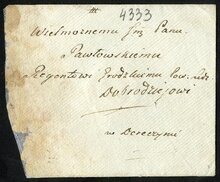 4333
Wielmoznemu Jmç Panu
Pawłowskiemu
Regentowi Grodzkiemu
Dobrodziejowi
w Dereczyni